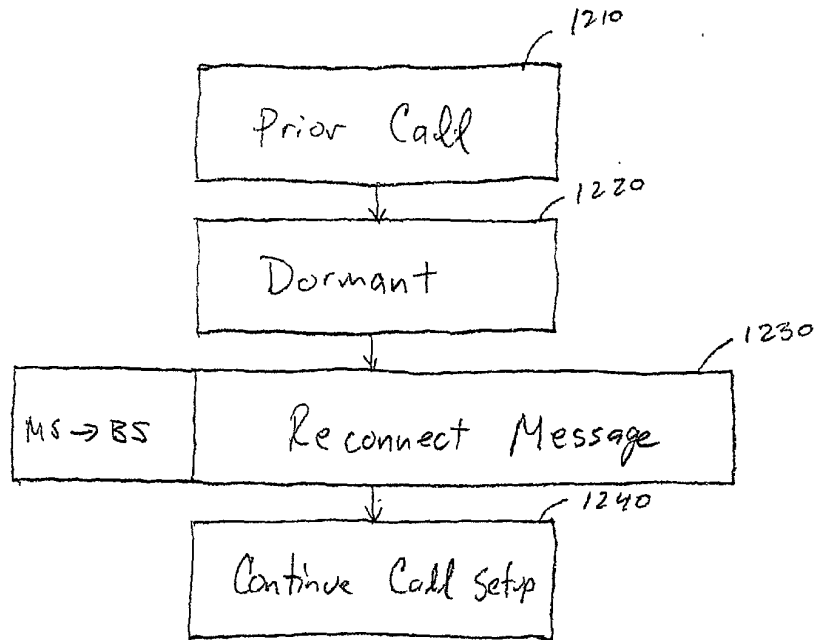 1210
Prior Call
1220
Dormant
1230
MS → BS
Reconnect Message
1240
Continue Call Setup